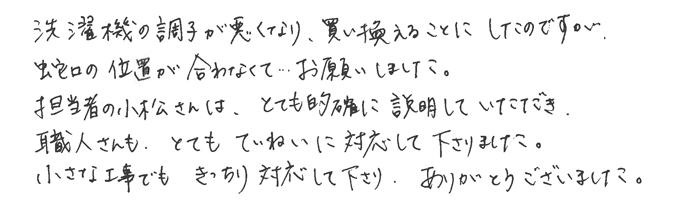 洗濯機の調子が悪くなり、買い換えることにしたのですが、
蛇口の位置が合わなくて…お願いしました。
担当者の小松さんは、とても的確に説明していただき、
職人さんも、とてもていねいに対応して下さりました。
小さな工事でもきっちり対応して下さり、ありがとうございました。